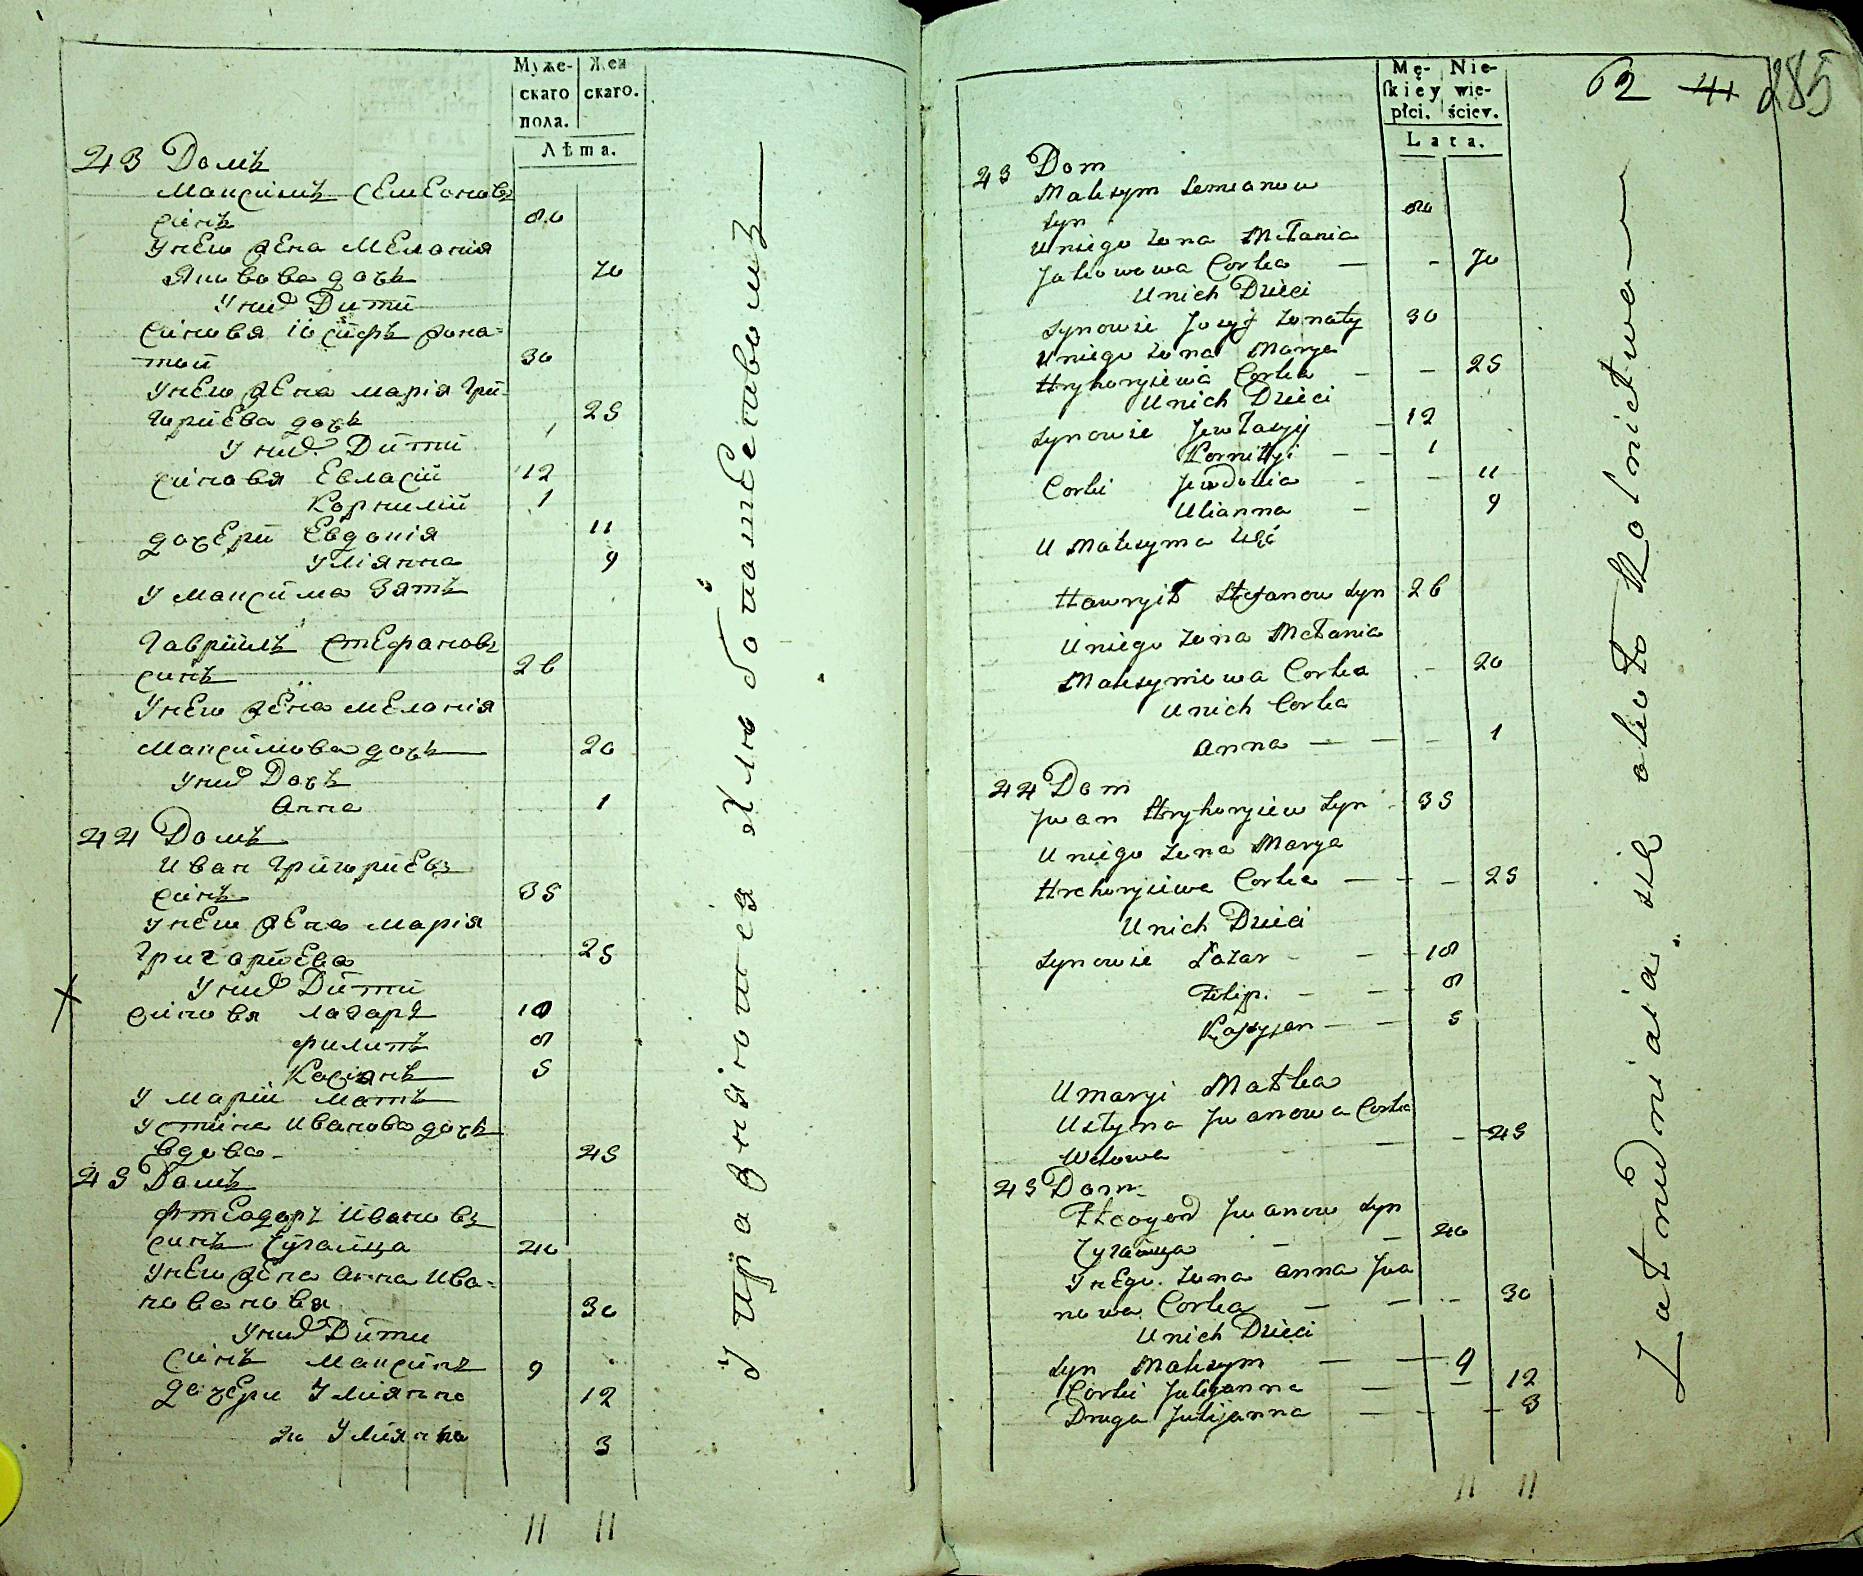 Муже-
скаго
пола.
Жен
скаго.
Лѣта.
43 Домъ
Максимъ Семеоновъ
синъ 80
У него жена Мелания
Яковова дочь 70
У них Дити
синовя Иосифъ жона-
тий 30
У него жена Марія Гри-
гориева дочь 25
У них Дити
синовя Евласій 12
Корнилий 1
дочери Евдокія 11
Уліянна 9
У Максима Зять
Гавриилъ Стефановъ
синъ 26
У него жена Меланія
Максимова дочь 20
У них Дочь
Анна 1
44 Домъ
Иван Григориевъ
синъ 35
У него жена Марія
Григориева 25
У них Дити
синовя Лазаръ 10
Филипъ 8
Касіянъ 5
У Марии Мать
Устина Иванова дочь
вдова 45
45 Домъ
Фтеодоръ Ивановъ
синъ Сугаица 40
У него жена Анна Ива-
новановя 30
У них Дити
Синъ Максимъ 9
Дочери Улиянна 12
2я Улиянна 3
11 11
Упражняются Хлѣбопашествомъ
Mę-
skiey
płci.
Nie-
wie-
ściey.
Lata.
62 41 285
43 Dom
Maksym Semianow
Syn 80
U niego Zona Mełania
Jakowowa Corka — - 70
U nich Dzieci
Synowie Jozyf Zonaty 30
U niego Zona Marya
Hryhoryiewa Corka — - 25
U nich Dzieci
Synowie Jewłasyj - 12
Korniłyi - - 1
Corki Jewdokia - - 11
Ulianna - 9
U Maksyma Zęć
Hawryił Stefanow Syn 26
U niego Zona Mełania
Maksymowa Corka - 20
U nich Corka
Anna — — - 1
44 Dom
Jwan Hryhoryiew Syn 35
U niego Zona Marya
Hrehoryiewa Corka — - - 25
U nich Dzieci
Synowie Łazar - - 10
Filip. - - - 8
Kasyjan — — 5
U Maryi Matka
Ustyna Jwanowa Corka
Wdowa — - 45
45 Dom
Fteoyod Jwanow Syn
Сугаица - - 40
У него Zona Anna Jwa
nowa Corka — - - 30
U nich Dzieci
Syn Maksym — — 9
Corki Julijanna — - 12
Druga Julijanna — - - 3
11 11
Zatrudniaią się około Rolnictwa